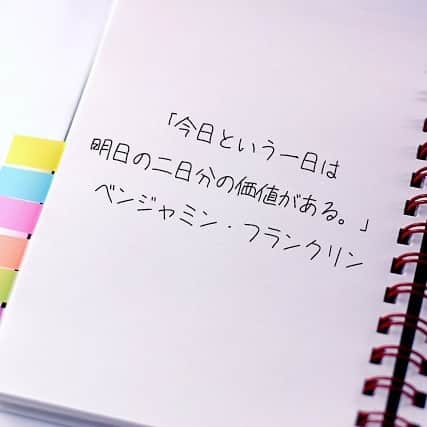 「今日という一日は
明日の二日分の価値がある。」
ベンジャミン・フランクリン